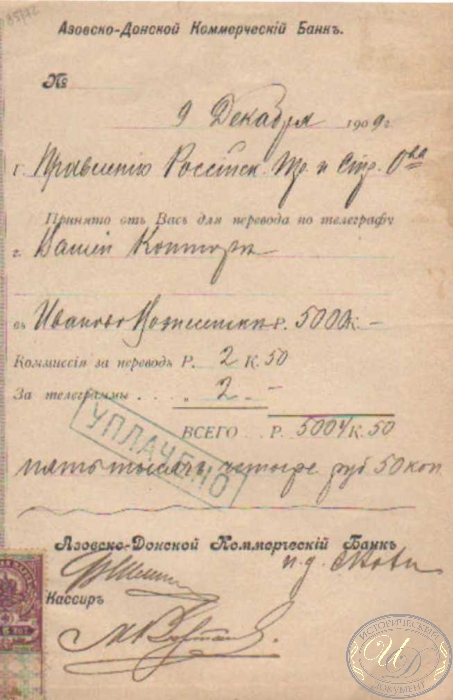 85172
Азовско-Донской Коммерческій Банкъ.
№
9 Декабря 1909 г.
Г. Правленію Россійск. Тр. и Стр. О-ва
Принято отъ Васъ для перевода по телеграфу
г. Вашей Конторѣ
въ Иваново Вознесенскъ Р. 5000 К. —
Коммиссія за переводъ Р. 2 К. 50
За телеграммы . . . „ 2 —
УПЛАЧЕНО
ВСЕГО . . Р. 5004 К. 50
пять тысячъ четыре руб 50 коп
Азовско-Донской Коммерческій Банкъ
п. д.
Кассиръ
ИСТОРИЧЕСКИЙ
ИД
ДОКУМЕНТ